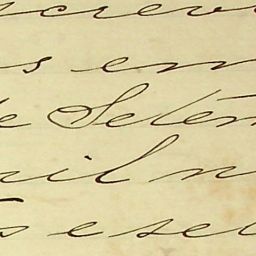 screv
s em
e Setem
ril n
s e set